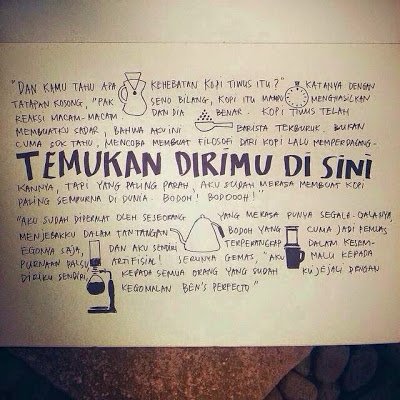 "DAN KAMU TAHU APA KEHEBATAN KOPI TIWUS ITU?" KATANYA DENGAN
TATAPAN KOSONG, "PAK SENO BILANG, KOPI ITU MAMPU MENGHASILKAN
REAKSI MACAM-MACAM. DAN DIA BENAR. KOPI TIWUS TELAH
MEMBUATKU SADAR, BAHWA AKU INI BARISTA TERBURUK. BUKAN
CUMA SOK TAHU, MENCOBA MEMBUAT FILOSOFI DARI KOPI LALU MEMPERDAGANG-
TEMUKAN DIRIMU DI SINI
KANNYA, TAPI YANG PALING PARAH, AKU SUDAH MERASA MEMBUAT KOPI
PALING SEMPURNA DI DUNIA. BODOH! BODOOOH!"
"AKU SUDAH DIPERALAT OLEH SESEORANG YANG MERASA PUNYA SEGALA-GALANYA,
MENJEBAKKU DALAM TANTANGAN BODOH YANG CUMA JADI PEMUAS
EGONYA SAJA, DAN AKU SENDIRI TERPERANGKAP DALAM KESEM-
PURNAAN PALSU ARTIFISIAL! SERUNYA GEMAS, "AKU MALU KEPADA
DIRIKU SENDIRI, KEPADA SEMUA ORANG YANG SUDAH KUJEJALI DENGAN
KEGOMBALAN BEN'S PERFECTO"